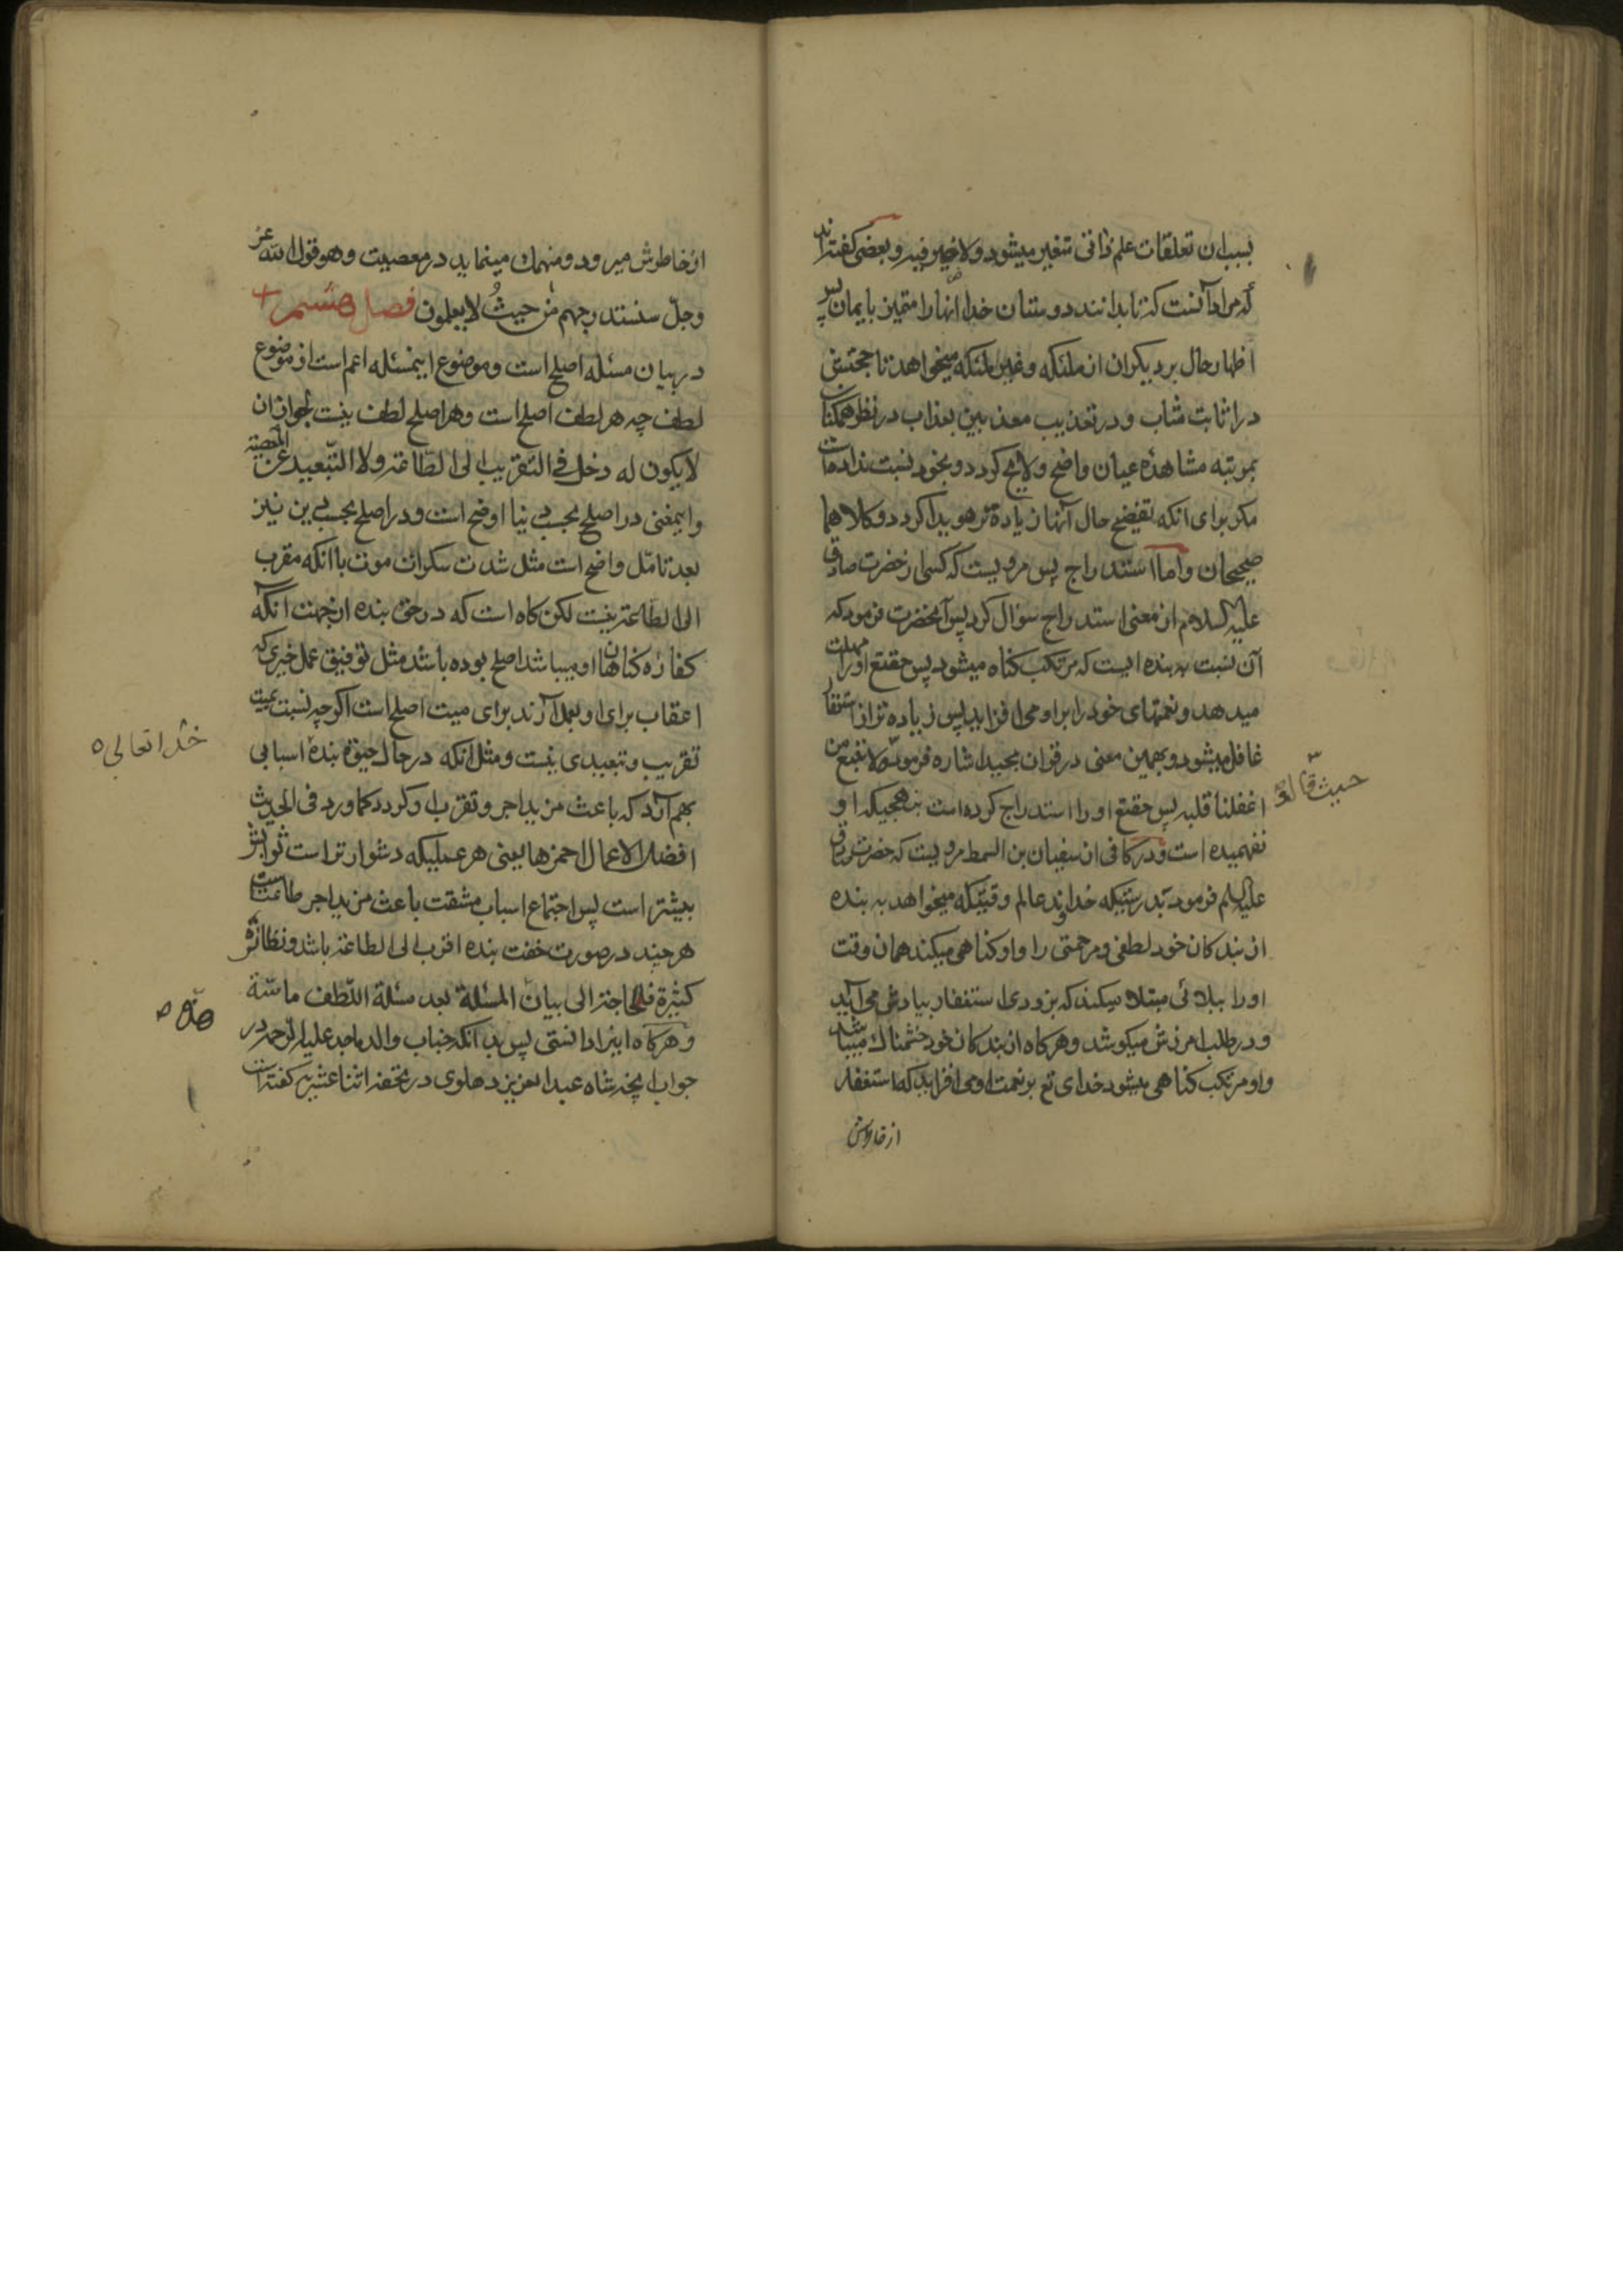 بسبب ان تعلقات علم ذاتی متغیر میشود ولا ضیر فیه و بعضی گفته‌اند
که مراد آنست که تا بدانند دوستان خدا آنها را متمیز بایمان پس
اظهار حال بر دیکران از ملئکه و غیر ملئکه میخواهد تا حجتش
در اثابت مثاب و در تعذیب معذبین بعذاب در نظر همکنان
بمرتبه مشاهدهٔ عیان واضح ولایح کردد و بخود نسبت نداده است
مکر برای انکه تفضیح حال آنها زیاده تر هویدا کردد و کلاهما
صحیحان واما استدراج پس مرویست که کسی از حضرت صادق
علیه السلام از معنی استدراج سؤال کرد پس آنحضرت فرمود که
آن نسبت به بنده ایست که مرتکب کناه میشود پس حقتع او را مهلت
میدهد و نعمتهای خود را بر او می افزاید پس زیاده تر از استغفار
غافل میشود و بهمین معنی در قران مجید اشاره فرموده ولا تتبع من
حیث قال
اغفلنا قلبه پس حقتع او را استدراج کرده است بنهجیکه او
نفهمیده است و در کافی از سفیان بن السمط مرویست که حضرت صادق
علیه السلم فرمود بدرستیکه خداوند عالم وقتیکه میخواهد به بنده
از بندکان خود لطفی و مرحمتی را و او کناهی میکند همان وقت
او را ببلائی مبتلا میکند که بزودی استغفار بیادش می آید
و در طلب امرزش میکوشد و هرکاه از بندکان خود خشمناک میباشد
و او مرتکب کناهی میشود خدای تع بر نعمت او می افزاید که استغفار
از خاطرش
از خاطرش میرود و منهمک مینماید در معصیت وهو قول الله عز
وجلّ سنستدرجهم من حیثُ لا یعلمون فصل هشتم
در بیان مسئله اصلح است و موضوع اینمسئله اعم است از موضوع
لطف چه هر لطف اصلح است و هر اصلح لطف نیست لجواز ان
لا یکون له دخل فی التقریب الی الطّاعة ولا التّبعید عن المعصیة
واینمعنی در اصلح بحسب دنیا اوضح است و در اصلح بحسب دین نیز
بعد تامّل واضح است مثل شدت سکرات موت با آنکه مقرب
الی الطّاعة نیست لکن کاه است که در حق بنده از جهت انکه
کفارهٔ کناهان او میباشد اصلح بوده باشد مثل توفیق عمل خیری که
اعقاب برای او بعمل آرند برای میت اصلح است اکرچه نسبت بمیت
تقریب و تبعیدی نیست و مثل انکه در حال حیوة بنده اسبابی
خدا تعالی
بهم آرد که باعث مزید اجر و تقرب او کردد کما ورد فی الحدیث
افضل الاعمال احمزها یعنی هر عملیکه دشوارتر است ثوابش
بیشتر است پس اجتماع اسباب مشقت باعث مزید اجر طاعت است
هرچند در صورت خفت بنده اقرب الی الطاعة باشد و نظائره
کثیرة فالحاجة الی بیان المسئلة بعد مسئلة اللّطف ماسّة
و هرکاه اینرا دانستی پس بدانکه جناب والد ماجد علیه الرّحمه در
جواب انچه شاه عبد العزیز دهلوی در تحفه اثنا عشریه کفته است